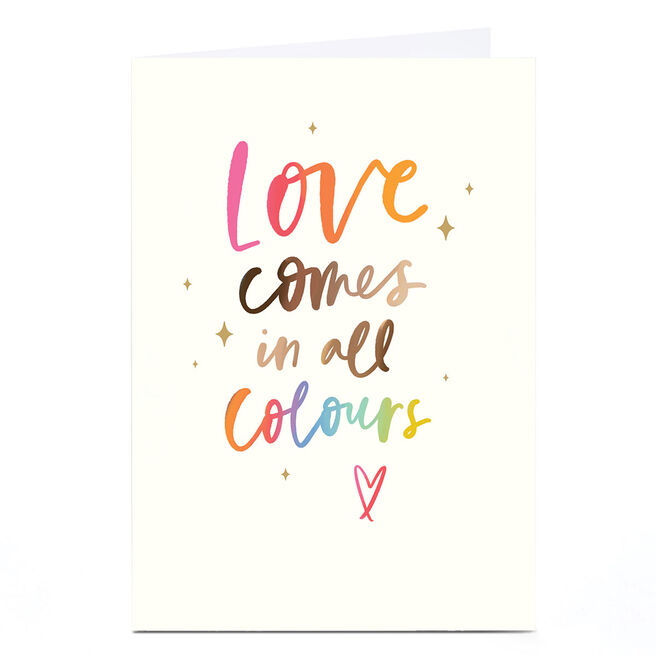 Love
comes
in all
Colours